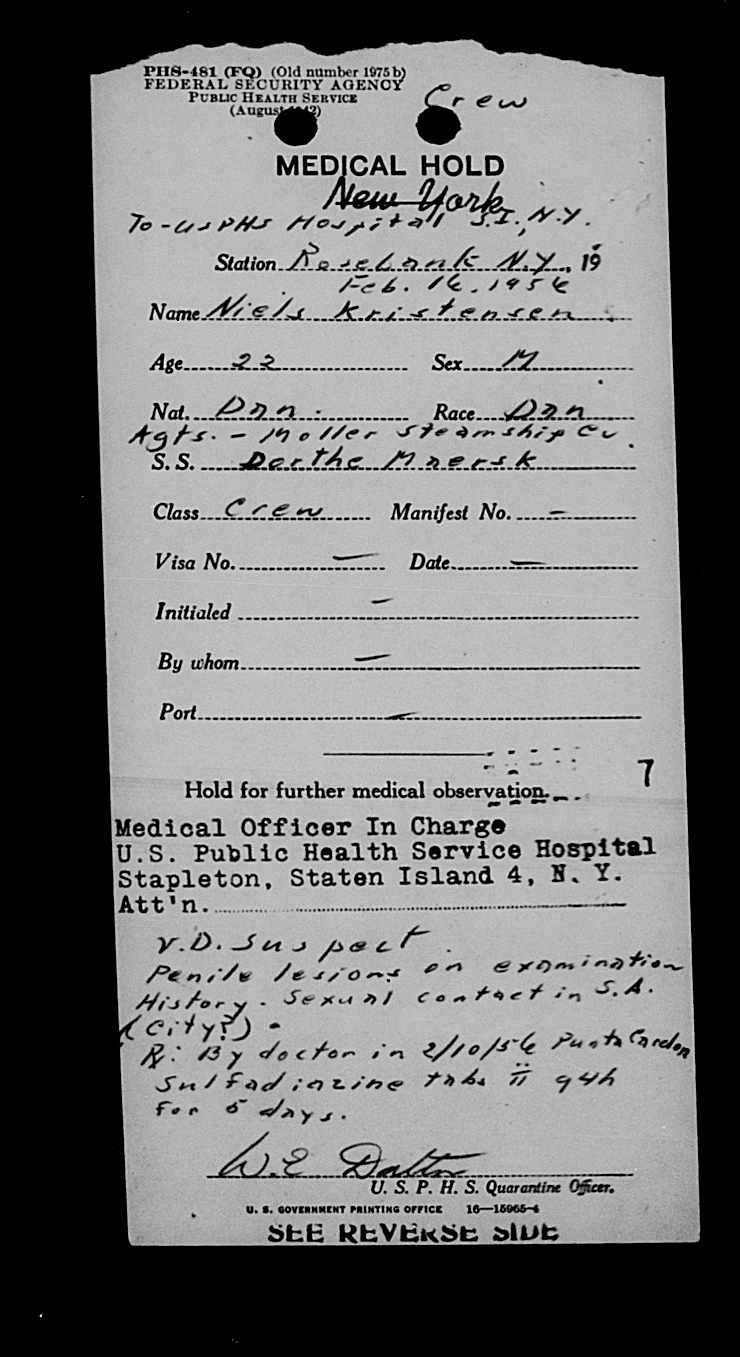 PHS-481 (FQ) (Old number 1975 b)
FEDERAL SECURITY AGENCY
PUBLIC HEALTH SERVICE
(August
Crew
MEDICAL HOLD
New York
To - USPHS Hospital S.I., N.Y.
Station Rosebank N.Y., 19
Feb. 16, 1956
Name Niels Kristensen
Age 22 Sex M
Nat. Dan. Race Dan
Agts. - Moller Steamship Co.
S. S. Dorthe Maersk
Class Crew Manifest No. -
Visa No. - Date -
Initialed -
By whom -
Port -
7
Hold for further medical observation.
Medical Officer In Charge
U.S. Public Health Service Hospital
Stapleton, Staten Island 4, N. Y.
Att'n.
V.D. Suspect.
Penile lesions on examination
History - Sexual contact in S.A.
(City?).
Rx: By doctor in 2/10/56 Punta Cardon
Sulfadiazine tabs ii q4h
for 5 days.
W.E. Dalton
U. S. P. H. S. Quarantine Officer.
U. S. GOVERNMENT PRINTING OFFICE 16—15965-4
SEE REVERSE SIDE